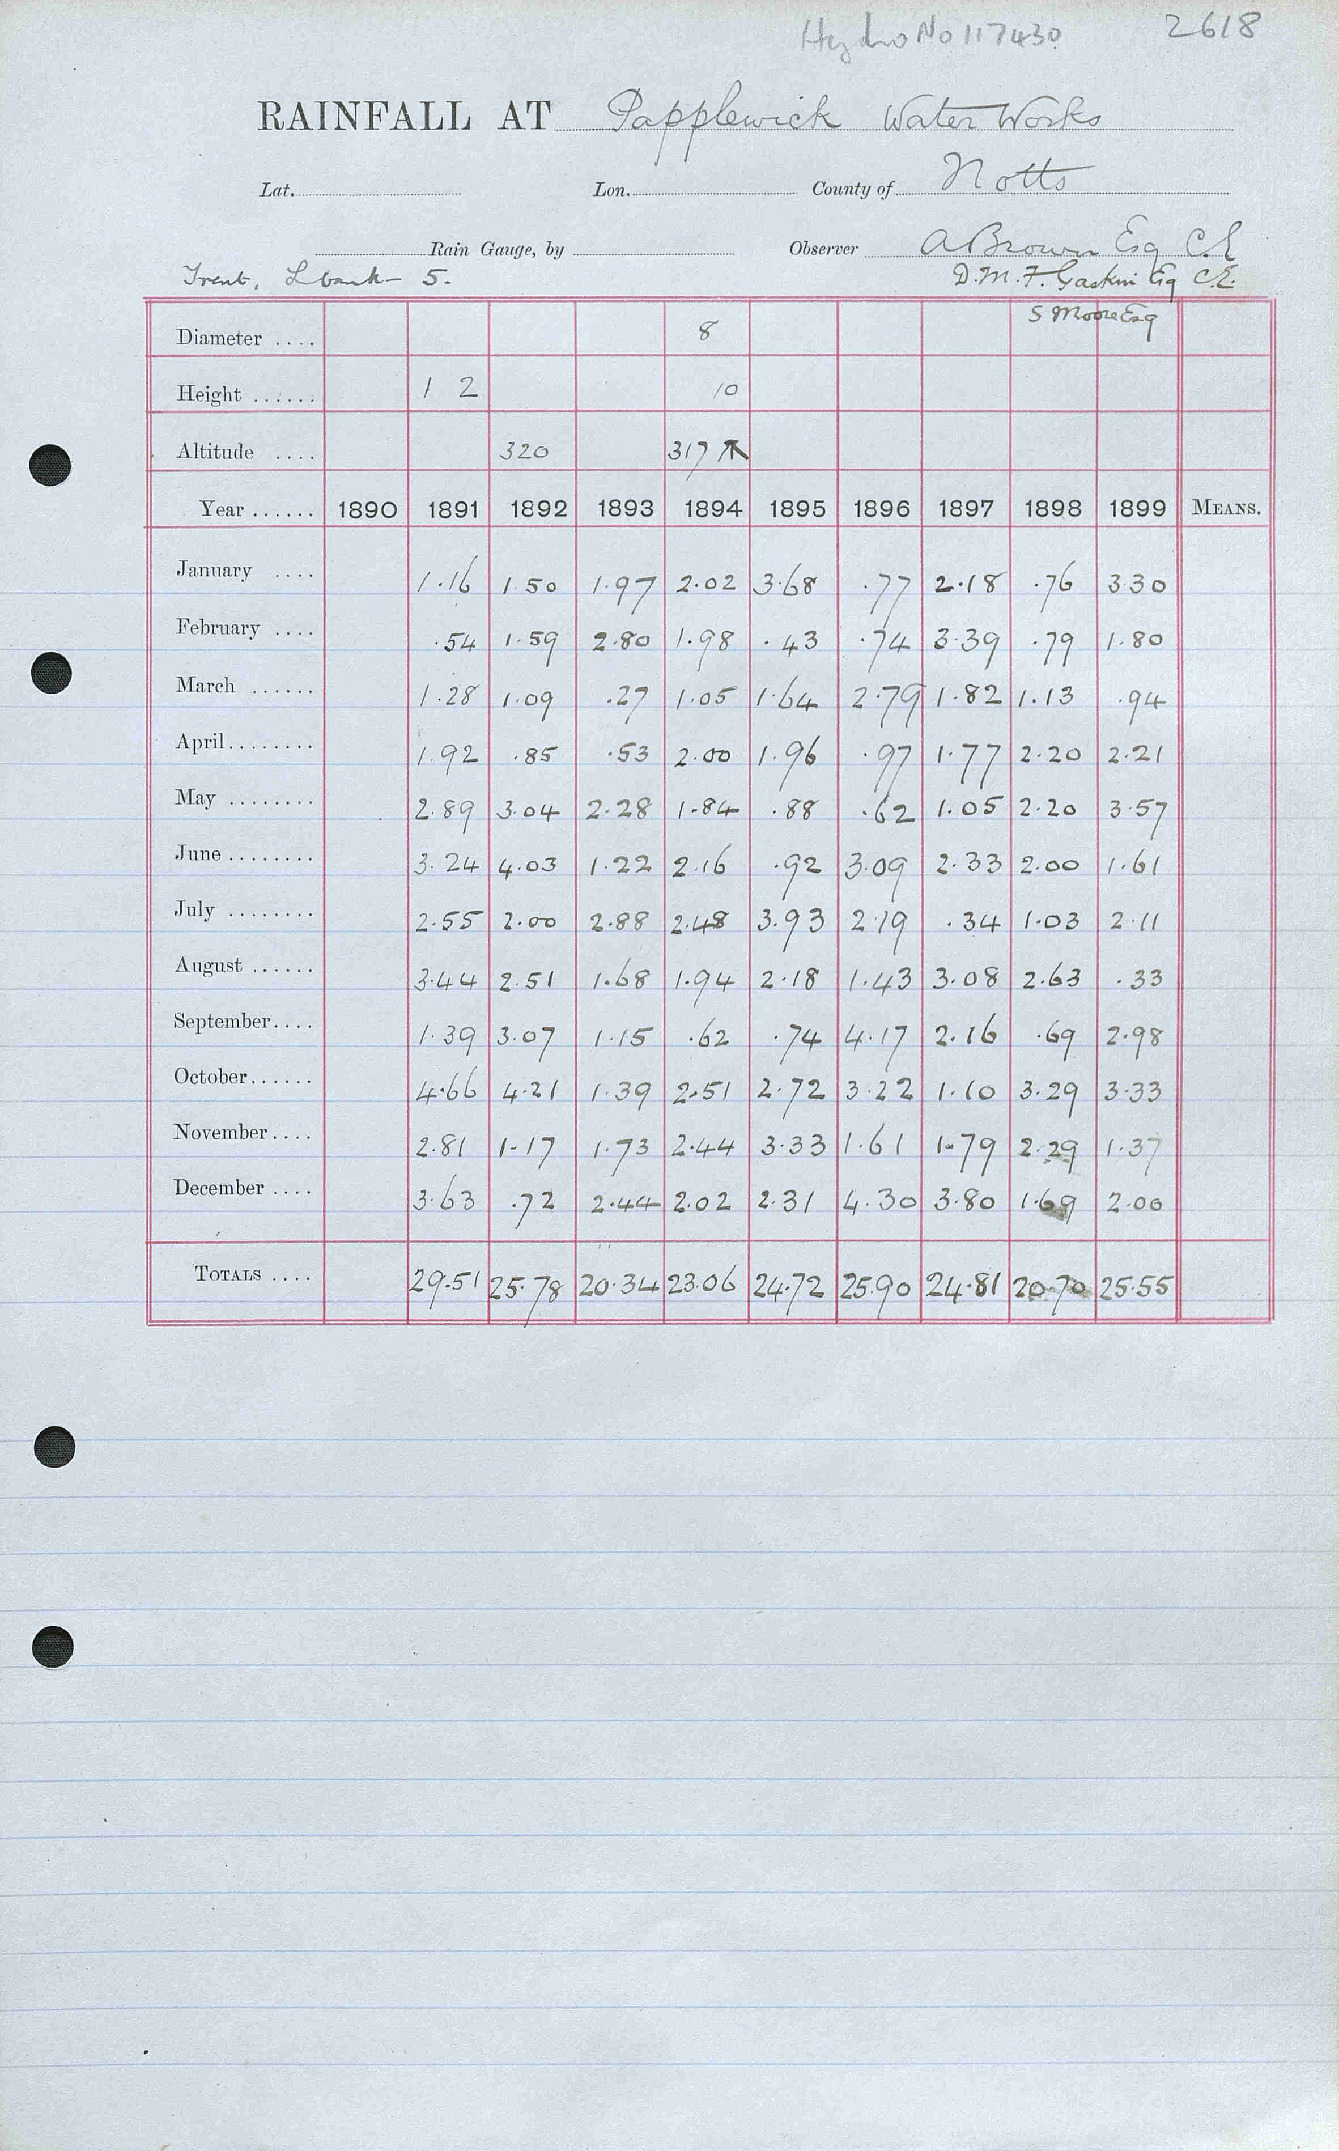 Hydro No 117430 2618
RAINFALL AT Papplewick Water Works
Lat. Lon. County of Notts
Rain Gauge, by Observer A Brown Esq C.E
Trent, L bank 5. D.M.F. Gaskin Esq C.E.
S Moore Esq
Diameter .... 8
Height ...... 1 2 10
Altitude .... 320 317
Year ...... 1890 1891 1892 1893 1894 1895 1896 1897 1898 1899 MEANS.
January .... 1.16 1.50 1.97 2.02 3.68 .77 2.18 .76 3 30
February .... .54 1.59 2.80 1.98 .43 .74 3.39 .79 1.80
March ...... 1.28 1.09 .27 1.05 1.64 2.79 1.82 1.13 .94
April........ 1.92 .85 .53 2.00 1.96 .97 1.77 2.20 2.21
May ........ 2.89 3.04 2.28 1.84 .88 .62 1.05 2.20 3.57
June ........ 3.24 4.03 1.22 2.16 .92 3.09 2.33 2.00 1.61
July ........ 2.55 2.00 2.88 2.48 3.93 2.19 .34 1.03 2.11
August ...... 3.44 2.51 1.68 1.94 2.18 1.43 3.08 2.63 .33
September.... 1.39 3.07 1.15 .62 .74 4.17 2.16 .69 2.98
October...... 4.66 4.21 1.39 2.51 2.72 3.22 1.10 3.29 3.33
November.... 2.81 1.17 1.73 2.44 3.33 1.61 1.79 2.29 1.37
December .... 3.63 .72 2.44 2.02 2.31 4.30 3.80 1.69 2.00
TOTALS .... 29.51 25.78 20.34 23.06 24.72 25.90 24.81 20.70 25.55